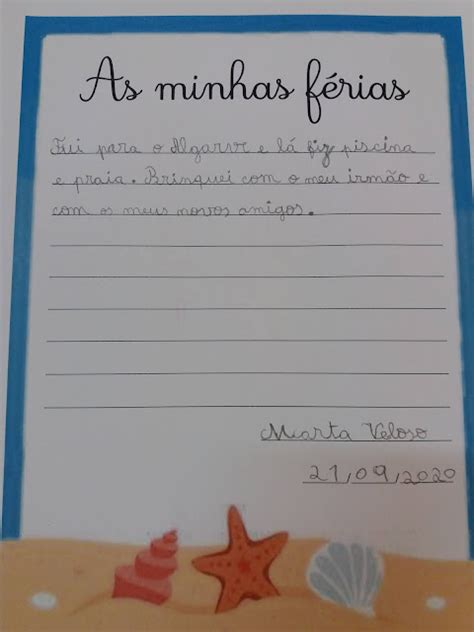 As minhas férias
Fui para o Algarve e lá fiz piscina
e praia. Brinquei com o meu irmão e
com os meus novos amigos.
Marta Veloso
21,09,2020